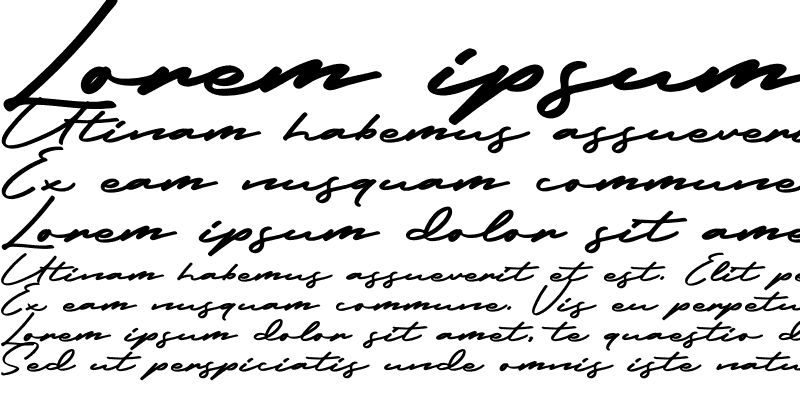 Lorem ipsum
Utinam habemus assueveri
Ex eam nusquam commune
Lorem ipsum dolor sit ame
Utinam habemus assueverit et est. Elit pe
Ex eam nusquam commune. Vis eu perpetu
Lorem ipsum dolor sit amet, te quaestio d
Sed ut perspiciatis unde omnis iste natu